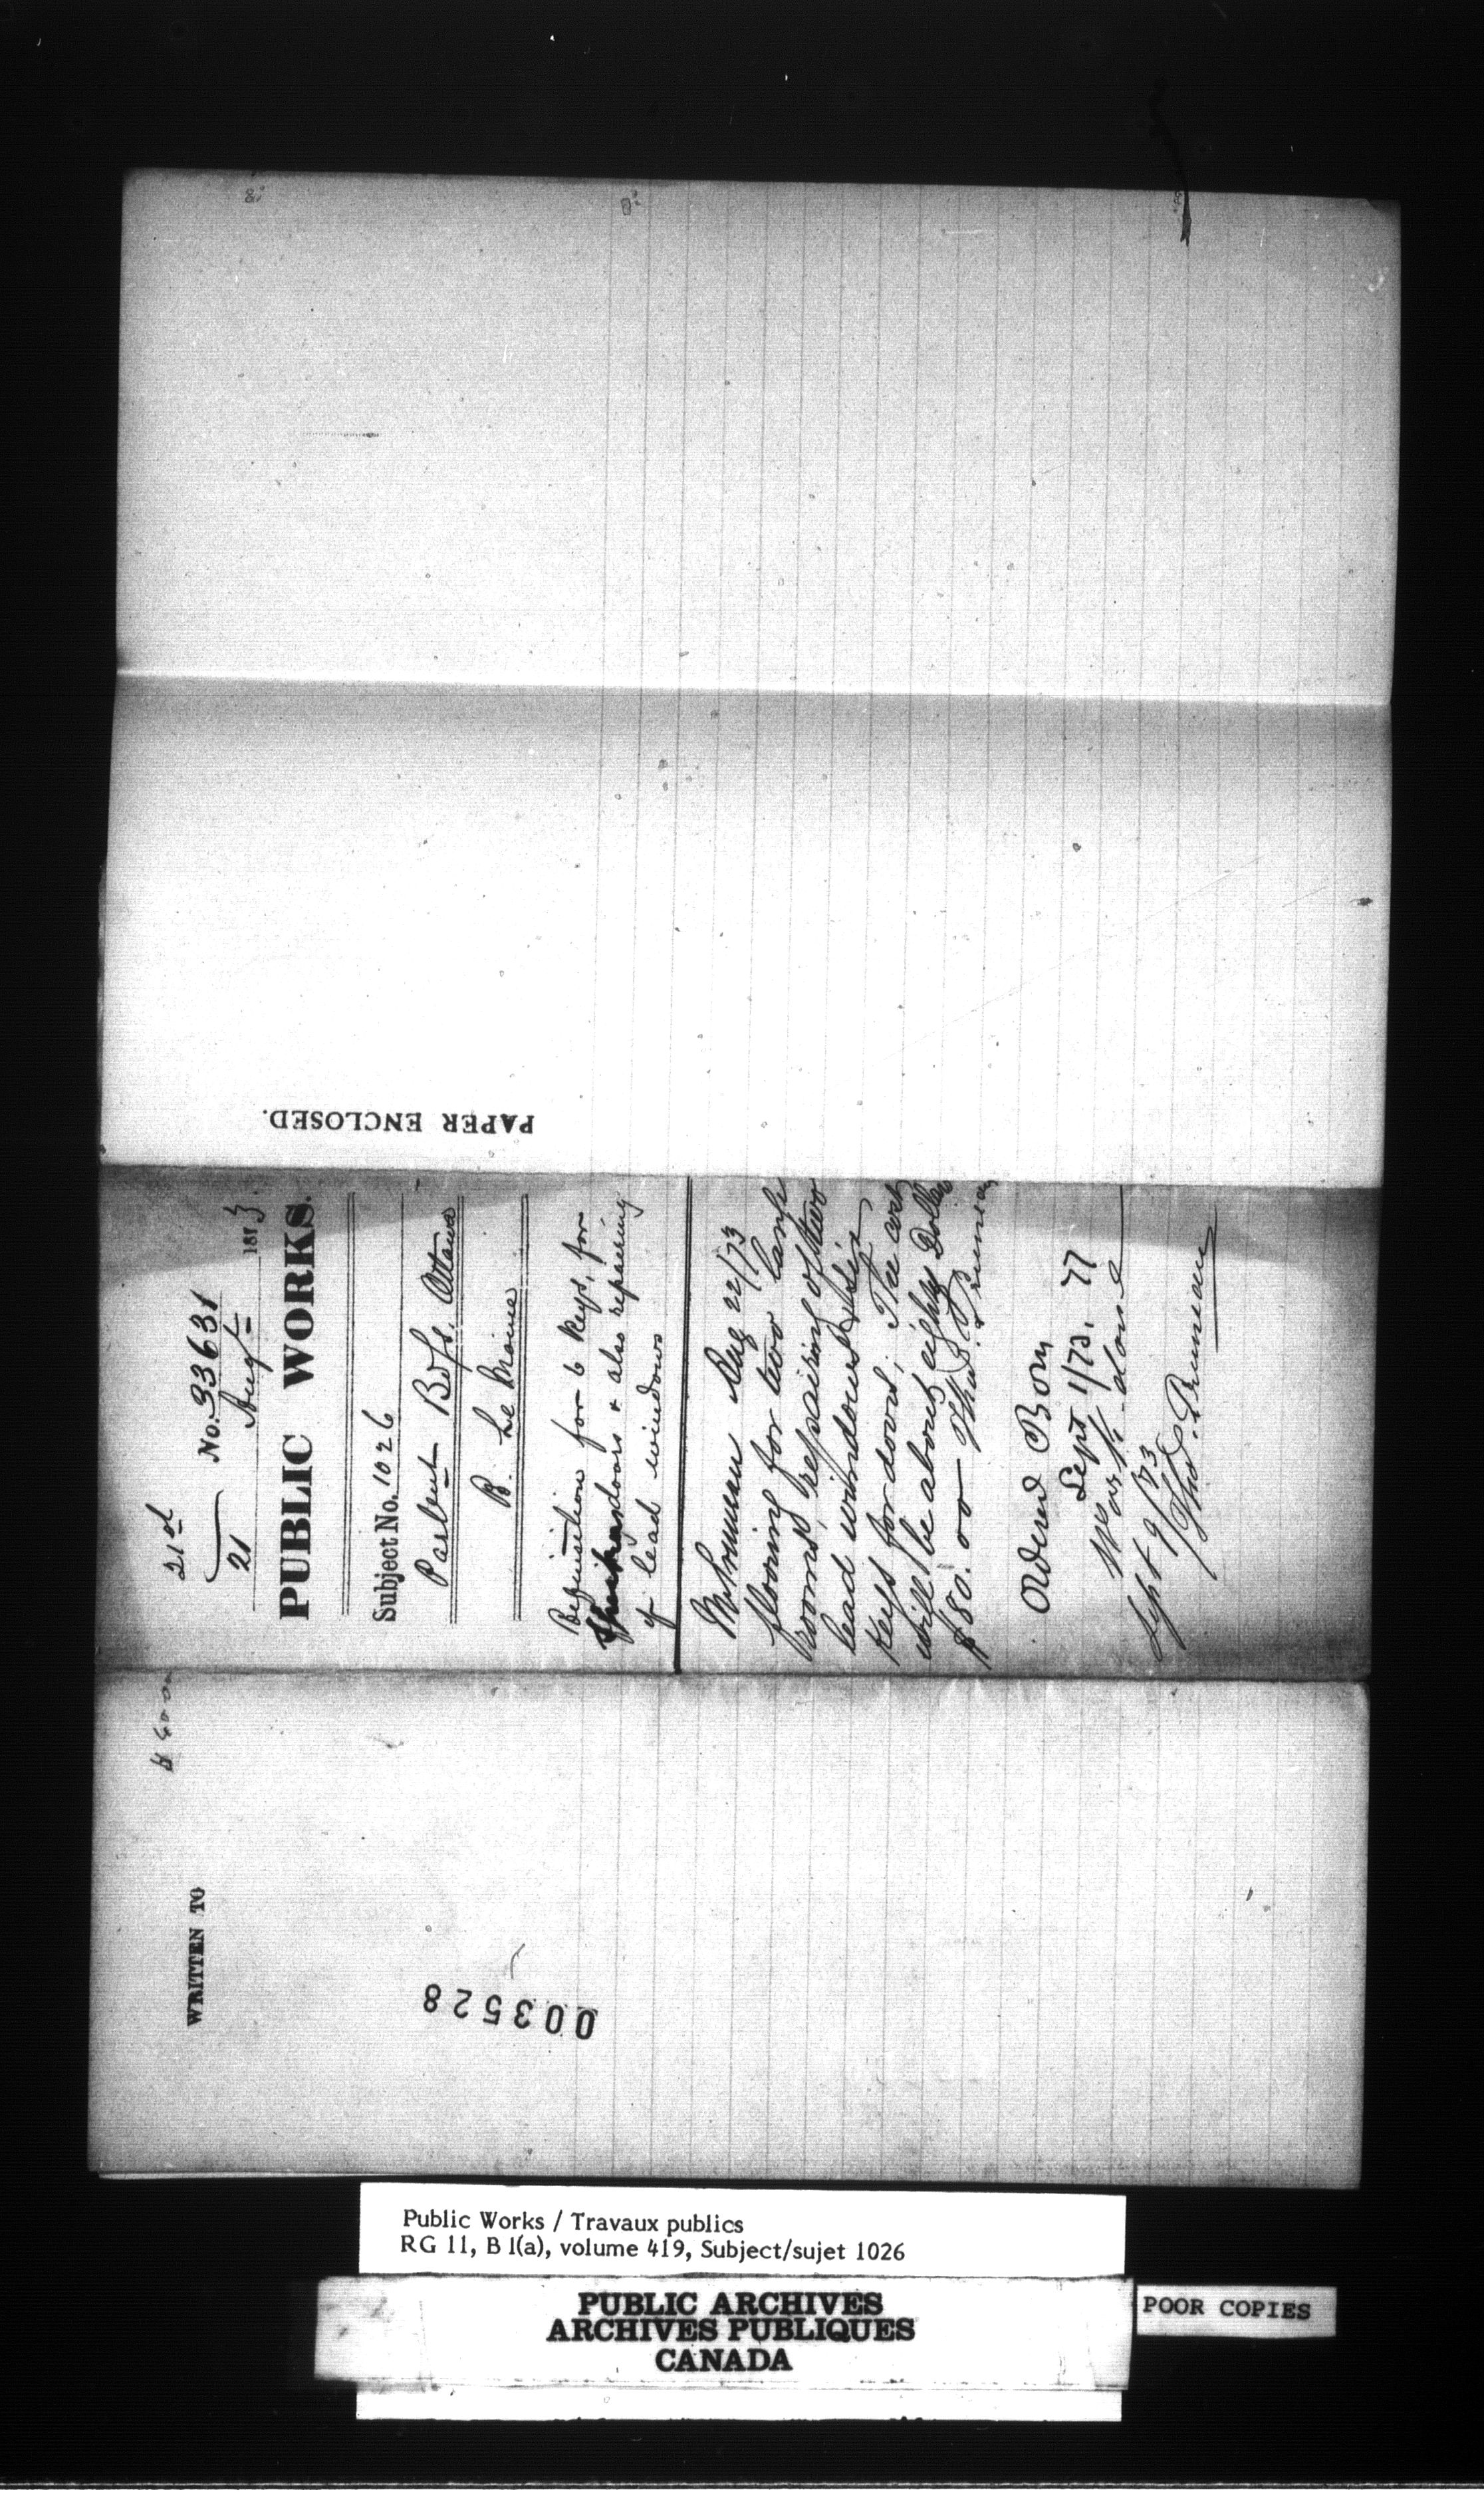 21st
No. 33631
21 Augt 1873
PUBLIC WORKS.
Subject No. 1026
Parlent Bdgs. Ottawa
R. Le Moine
Requisition for 6 keys, for
doors & also repairing
of lead windows
Aug 22/73
flooring for two
rooms, repairing of two
lead windows & six
keys for doors; The cost
will be about eighty Dollars
$80.00 Thos.
Ordered
Sept 1/73. 77
Work done
Sept 9/73
Thos.
PAPER ENCLOSED.
WRITTEN TO
003528
Public Works / Travaux publics
RG 11, B 1(a), volume 419, Subject/sujet 1026
PUBLIC ARCHIVES
ARCHIVES PUBLIQUES
CANADA
POOR COPIES